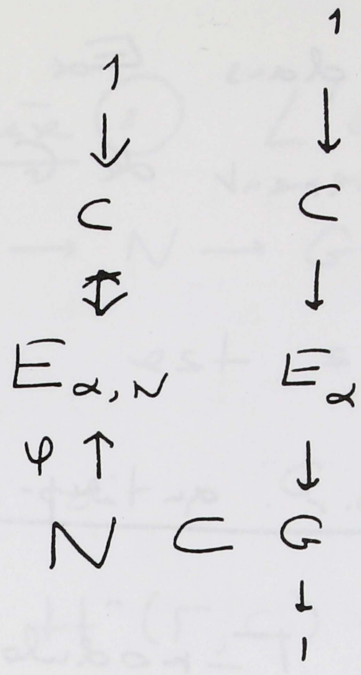 1 1
↓ ↓
C C
↓ ↓
E_{α,N} E_α
φ ↑ ↓
N ⊂ G
↓
1